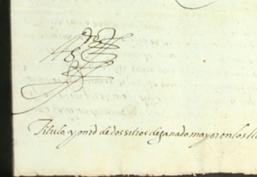 Titulo y mrd de dos sitios de ganado mayor en los